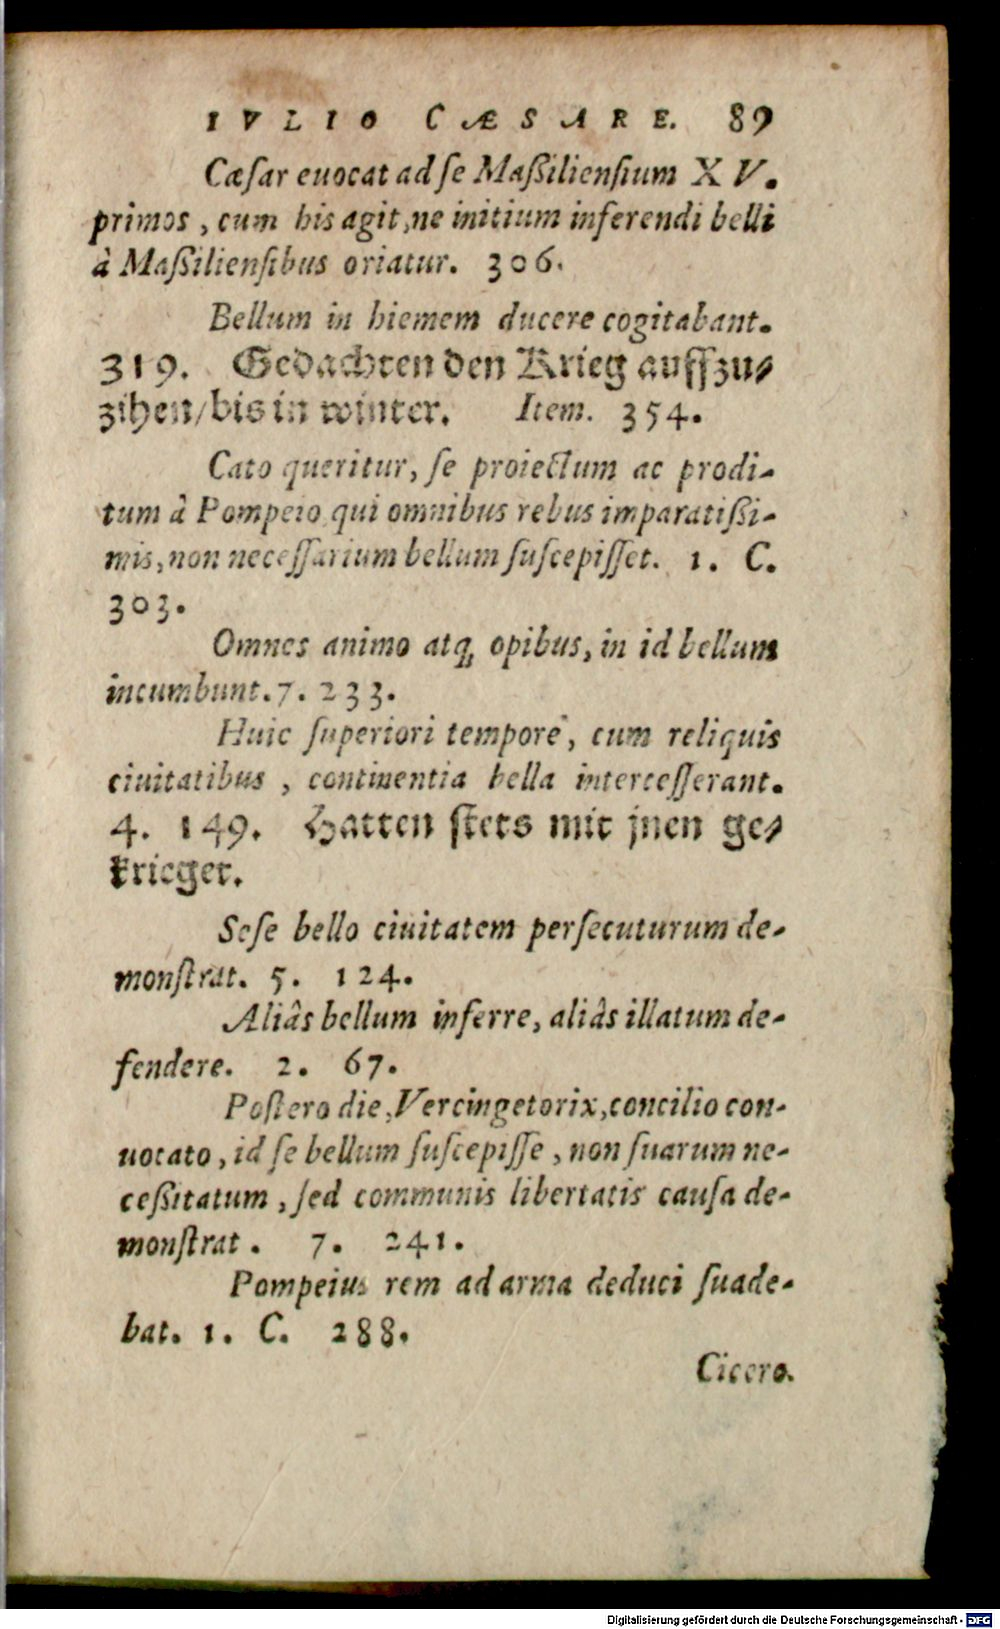 IVLIO CÆSARE. 89
Cæſar euocat ad ſe Maßilienſium XV.
primos, cum his agit, ne initium inferendi belli
à Maßilienſibus oriatur. 306.
Bellum in hiemem ducere cogitabant.
319. Gedachten den Krieg auffzu⸗
zihen/bis in winter. Item. 354.
Cato queritur, ſe proiectum ac prodi-
tum à Pompeio qui omnibus rebus imparatißi-
mis, non neceſſarium bellum ſuſcepiſſet. 1. C.
303.
Omnes animo atq́; opibus, in id bellum
incumbunt. 7. 233.
Huic ſuperiori tempore, cum reliquis
ciuitatibus, continentia bella interceſſerant.
4. 149. Hatten ſtets mit jnen ge⸗
krieget.
Seſe bello ciuitatem perſecuturum de-
monſtrat. 5. 124.
Aliâs bellum inferre, aliâs illatum de-
fendere. 2. 67.
Poſtero die, Vercingetorix, concilio con-
uocato, id ſe bellum ſuſcepiſſe, non ſuarum ne-
ceßitatum, ſed communis libertatis cauſa de-
monſtrat. 7. 241.
Pompeius rem ad arma deduci ſuade-
bat. 1. C. 288.
Cicero.
Digitalisierung gefördert durch die Deutsche Forschungsgemeinschaft - DFG